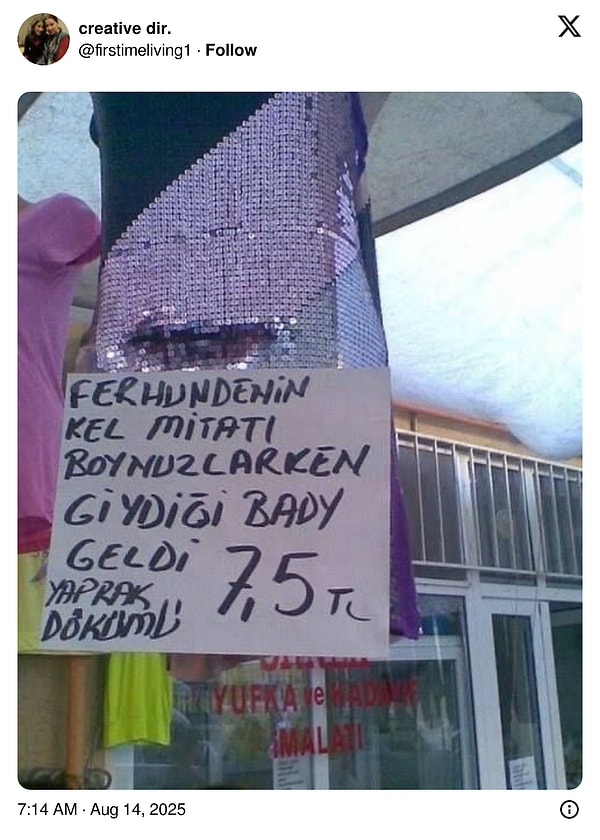 creative dir.
@firstimeliving1 · Follow
FERHUNDENİN
KEL MİTATI
BOYNUZLARKEN
GİYDİĞİ BADY
GELDİ 7,5 TL
YAPRAK
DÖKÜMÜ
YUFKA ve KADAYIF
İMALATI
7:14 AM · Aug 14, 2025